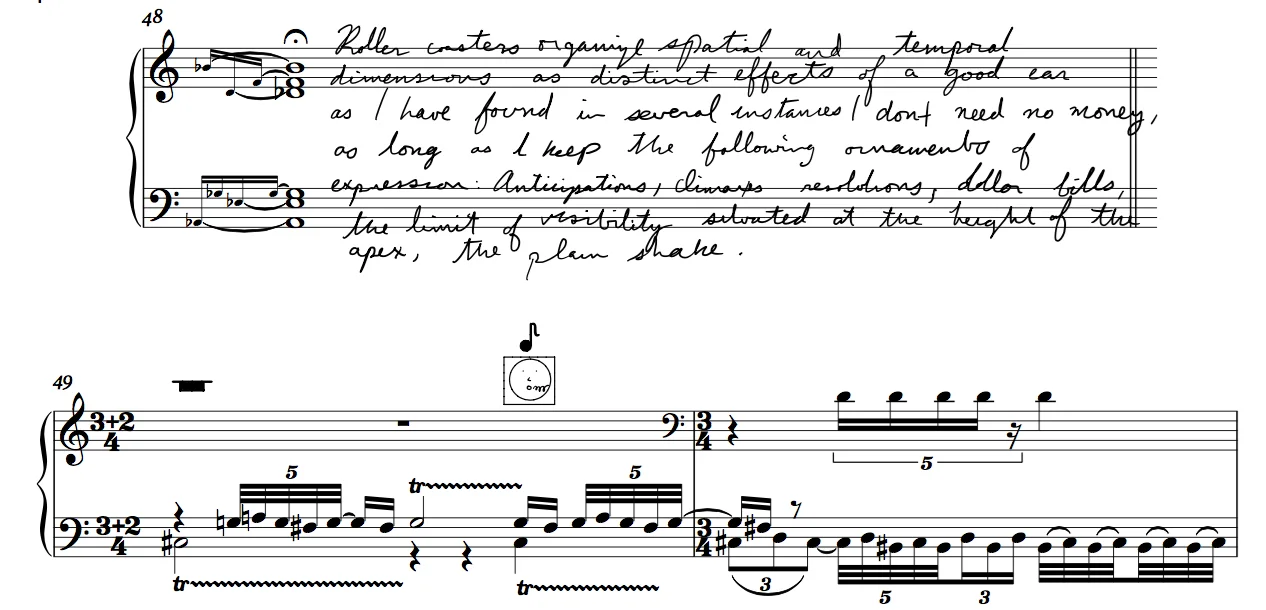 48
Roller coasters organize spatial and temporal
dimensions as distinct effects of a good ear
as I have found in several instances I dont need no money,
as long as I keep the following ornaments of
expression: Anticipations, climaxes resolutions, dollar bills,
the limit of visibility situated at the height of the
apex, the plain shake.
49
3+2
4
5
tr
5
3
4
5
3+2
4
tr
tr
3
4
3
5
3